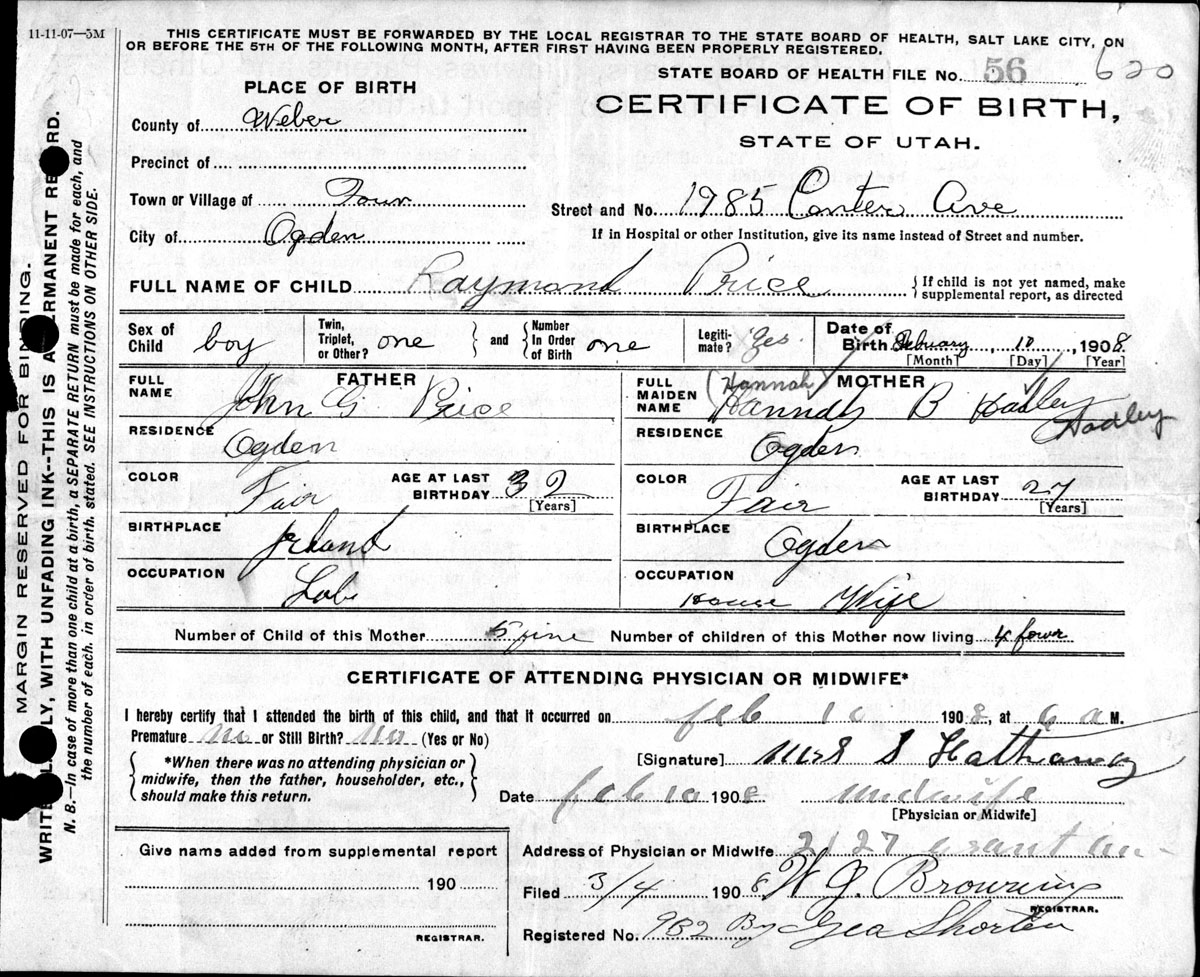 11-11-07—5M
THIS CERTIFICATE MUST BE FORWARDED BY THE LOCAL REGISTRAR TO THE STATE BOARD OF HEALTH, SALT LAKE CITY, ON
OR BEFORE THE 5TH OF THE FOLLOWING MONTH, AFTER FIRST HAVING BEEN PROPERLY REGISTERED.
STATE BOARD OF HEALTH FILE No. 56 620
PLACE OF BIRTH
CERTIFICATE OF BIRTH,
STATE OF UTAH.
County of Weber
Precinct of
Town or Village of
Street and No. 1985 Ave
City of Ogden
If in Hospital or other Institution, give its name instead of Street and number.
FULL NAME OF CHILD Raymond Price { If child is not yet named, make
supplemental report, as directed
Sex of Child boy
Twin, Triplet, or Other? one } and { Number In Order of Birth one
Legiti- mate? Yes
Date of Birth February 10, 1908
[Month] [Day] [Year]
FATHER
FULL NAME John G Price
RESIDENCE Ogden
COLOR Fair
AGE AT LAST BIRTHDAY 32
[Years]
BIRTHPLACE
OCCUPATION Lab
MOTHER
FULL MAIDEN NAME (Hannah) Hannah B Hadley Hadley
RESIDENCE Ogden
COLOR Fair
AGE AT LAST BIRTHDAY 27
[Years]
BIRTHPLACE Ogden
OCCUPATION House Wife
Number of Child of this Mother 5 Number of children of this Mother now living 4
CERTIFICATE OF ATTENDING PHYSICIAN OR MIDWIFE*
I hereby certify that I attended the birth of this child, and that it occurred on feb 10 1908, at 6 a M.
Premature no or Still Birth? no (Yes or No)
{ *When there was no attending physician or
midwife, then the father, householder, etc.,
should make this return. }
[Signature] Mrs S Hathaway
Date feb 10 1908 midwife
[Physician or Midwife]
Give name added from supplemental report
190
REGISTRAR.
Address of Physician or Midwife 2127 Grant
Filed 3/4 1908 W J Browning
REGISTRAR.
Registered No. 932 By Geo Shorten
MARGIN RESERVED FOR BINDING.
WRITE LY, WITH UNFADING INK--THIS IS A RMANENT RE RD.
N. B.—In case of more than one child at a birth, a SEPARATE RETURN must be made for each, and
the number of each, in order of birth, stated. SEE INSTRUCTIONS ON OTHER SIDE.